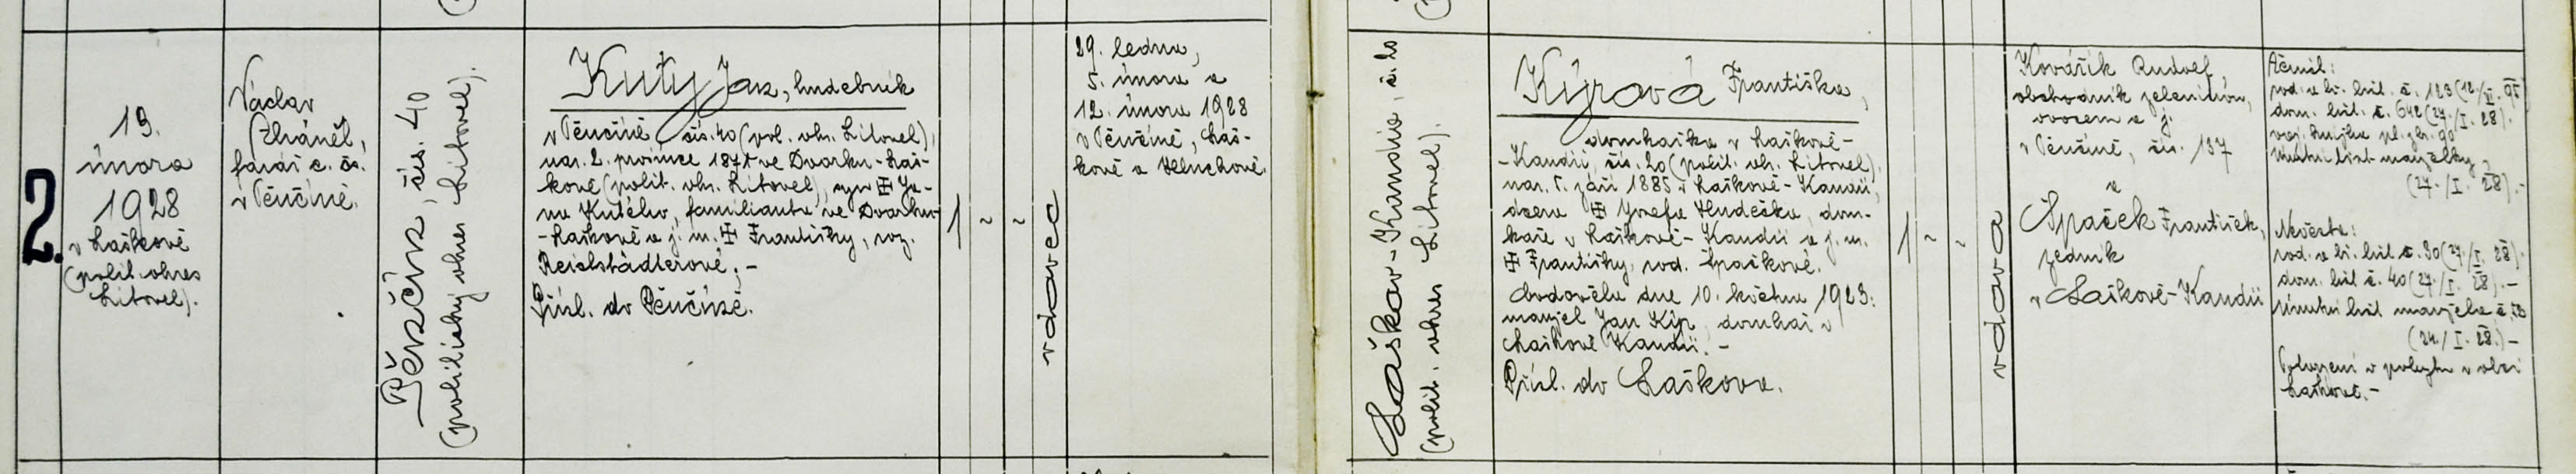 2.
19.
února
1928
v Laškově
(polit. okres
Litovel).
Václav
farář c. čs.
v Pěnčíně.
Pěnčín, čís. 40
(politický okres Litovel).
Kutý Jan, hudebník
v Pěnčíně čís. 40 (pol. okr. Litovel),
nar. 2. prosince 187 ve Dvorku-Laš-
kově (polit. okr. Litovel), syn Ja-
na Kutého, familianta ve Dvorku
-Laškově a j. m. Františky, roz.
Reichstädterové. -
Přísl. do Pěnčína.
1 ~ ~
vdovec
29. ledna,
5. února a
12. února 1928
v Pěnčíně, Laš-
kově a Hluchově.
Laškov-Kandia, čís.
(polit. okres Litovel).
Kýrová Františka,
domkařka v Laškově-
-Kandii, čís. 20 (polit. okr. Litovel),
nar. 5. září 1885 v Laškově-Kandii,
dcera Josefa Hudečka, dom-
kaře v Laškově-Kandii a j. m.
Františky, rod. Špačkové.
Ovdověla dne 10. května 1923:
manžel Jan Kýr, domkař v
Laškově Kandii. -
Přísl. do Laškova.
1 ~ ~
vdova
Kovářík Rudolf,
obchodník zeleninou,
ovocem a j.
v Pěnčíně, čís. 137
a
Špaček František,
zedník
v Laškově-Kandii
Ženich:
rod. a kř. list č.
dom. list č. 642 (27./I. 28).
úmrtní list manželky
(27./I. 28). -
Nevěsta:
rod. a kř. list č. 30 (27./I. 28).
dom. list č. 40 (27./I. 28). -
Úmrtní list manžela č.
(24./I. 28.) -
Potvrzení o pobytu v obci
Laškově. -